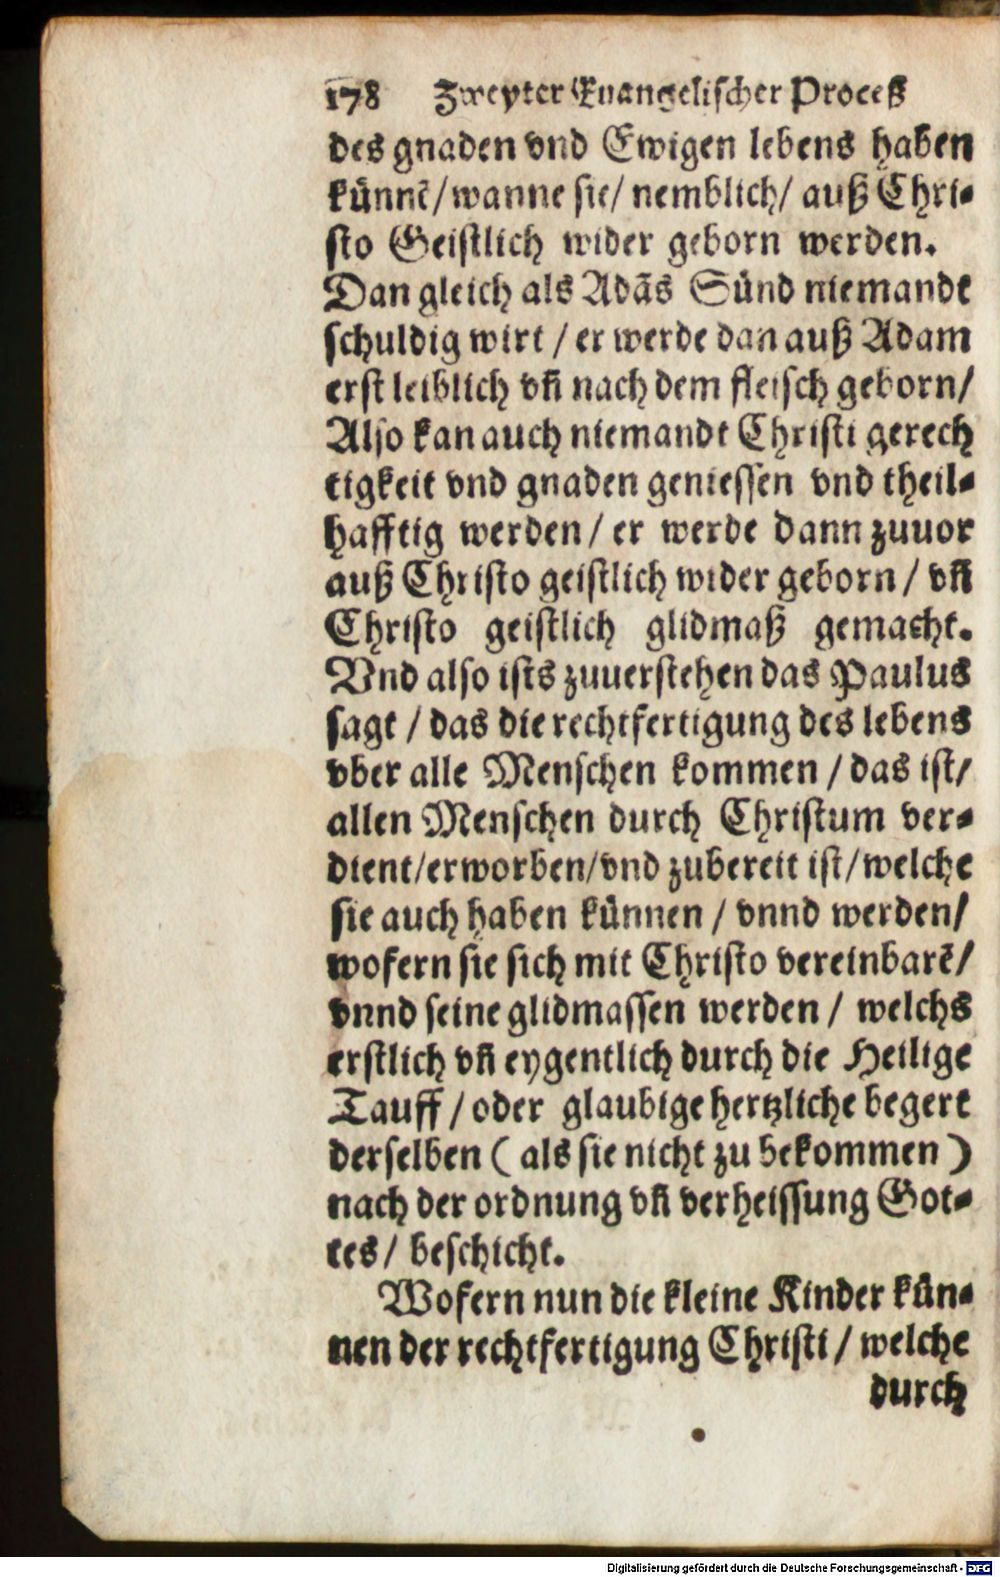 178 Zweyter Euangelischer Proceß
des gnaden vnd Ewigen lebens haben
künnẽ/ wanne sie/ nemblich/ auß Chri-
sto Geistlich wider geborn werden.
Dan gleich als Adãs Sünd niemandt
schuldig wirt / er werde dan auß Adam
erst leiblich vñ nach dem fleisch geborn/
Also kan auch niemandt Christi gerech
tigkeit vnd gnaden geniessen vnd theil-
hafftig werden / er werde dann zuuor
auß Christo geistlich wider geborn / vñ
Christo geistlich glidmaß gemacht.
Vnd also ists zuuerstehen das Paulus
sagt / das die rechtfertigung des lebens
vber alle Menschen kommen / das ist/
allen Menschen durch Christum ver-
dient/erworben/vnd zubereit ist/welche
sie auch haben künnen / vnnd werden/
wofern sie sich mit Christo vereinbarẽ/
vnnd seine glidmassen werden / welchs
erstlich vñ eygentlich durch die Heilige
Tauff / oder glaubige hertzliche begert
derselben ( als sie nicht zu bekommen )
nach der ordnung vñ verheissung Got-
tes / beschicht.
Wofern nun die kleine Kinder kün-
nen der rechtfertigung Christi / welche
durch
Digitalisierung gefördert durch die Deutsche Forschungsgemeinschaft - DFG